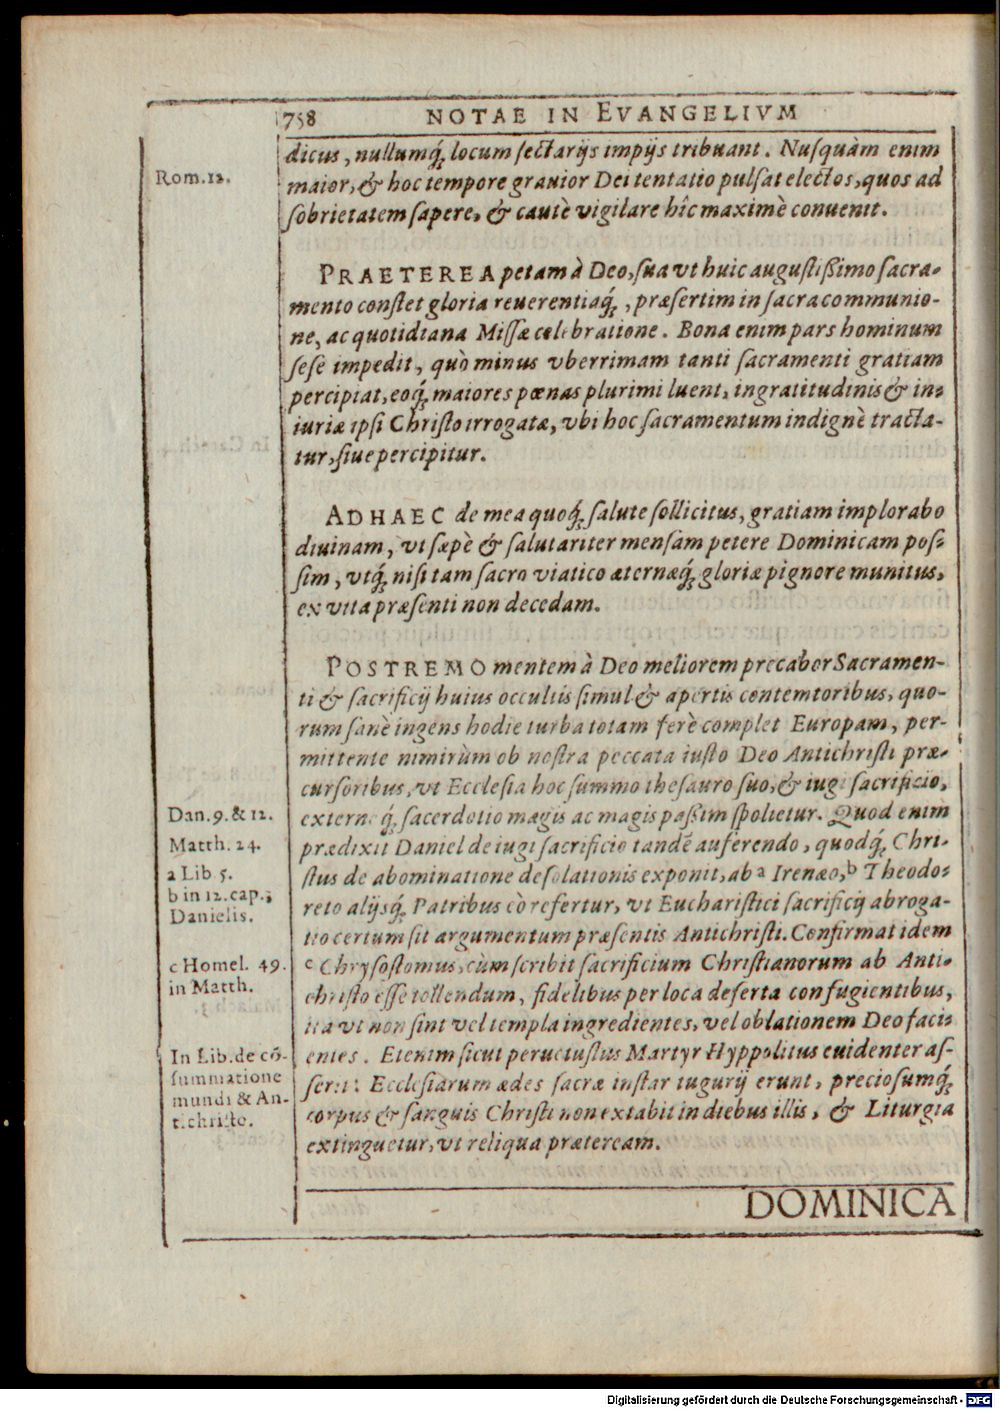 758 NOTAE IN EVANGELIVM
dicus, nullumq́; locum sectarijs impijs tribuant. Nusquàm enim
Rom. 12.
maior, & hoc tempore grauior Dei tentatio pulsat electos, quos ad
sobrietatem sapere, & cautè vigilare hîc maximè conuenit.
PRAETEREA petam à Deo, sua vt huic augustißimo sacra-
mento constet gloria reuerentiaq́;, præsertim in sacra communio-
ne, ac quotidiana Missæ celebratione. Bona enim pars hominum
sese impedit, quò minus vberrimam tanti sacramenti gratiam
percipiat, eoq́; maiores pœnas plurimi luent, ingratitudinis & in-
iuriæ ipsi Christo irrogatæ, vbi hoc sacramentum indignè tracta-
tur, siue percipitur.
ADHAEC de mea quoq́; salute sollicitus, gratiam implorabo
diuinam, vt sæpè & salutariter mensam petere Dominicam pos-
sim, vtq́; nisi tam sacro viatico æternæq́; gloriæ pignore munitus,
ex vita præsenti non decedam.
POSTREMO mentem à Deo meliorem precabor Sacramen-
ti & sacrificij huius occultis simul & apertis contemtoribus, quo-
rum sanè ingens hodie turba totam ferè complet Europam, per-
mittente nimirùm ob nostra peccata iusto Deo Antichristi præ-
cursoribus, vt Ecclesia hoc summo thesauro suo, & iugi sacrificio,
Dan. 9. & 12.
externoq́; sacerdotio magis ac magis paßim spolietur. Quod enim
Matth. 24.
prædixit Daniel de iugi sacrificio tandē auferendo, quodq́; Chri-
a Lib 5.
stus de abominatione desolationis exponit, ab a Irenæo, b Theodo-
b in 12. cap.
Danielis.
reto alijsq́; Patribus eò refertur, vt Eucharistici sacrificij abroga-
tio certum sit argumentum præsentis Antichristi. Confirmat idem
c Homel. 49.
in Matth.
c Chrysostomus, cùm scribit sacrificium Christianorum ab Anti-
christo esse tollendum, fidelibus per loca deserta confugientibus,
ita vt non sint vel templa ingredientes, vel oblationem Deo faci-
In Lib. de cō-
summatione
mundi & An-
tichristo.
entes. Etenim sicut peruetustus Martyr Hyppolitus euidenter as-
serit: Ecclesiarum ædes sacræ instar tugurij erunt, preciosumq́;
corpus & sanguis Christi non extabit in diebus illis, & Liturgia
extinguetur, vt reliqua præteream.
DOMINICA
Digitalisierung gefördert durch die Deutsche Forschungsgemeinschaft - DFG